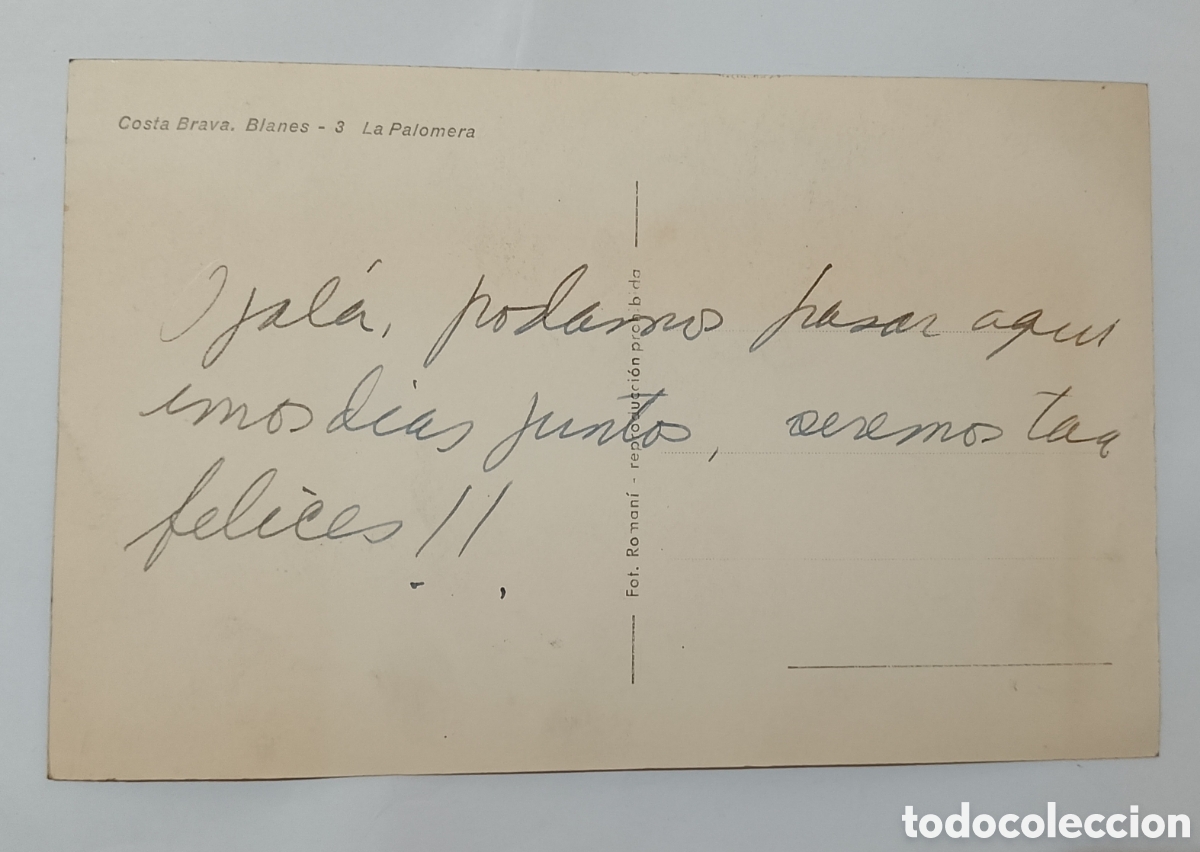 Costa Brava. Blanes - 3 La Palomera
Ojalá, podamos pasar aqui
unos dias juntos, seremos tan
felices!!
Fot. Romaní - reproducción prohibida
todocoleccion